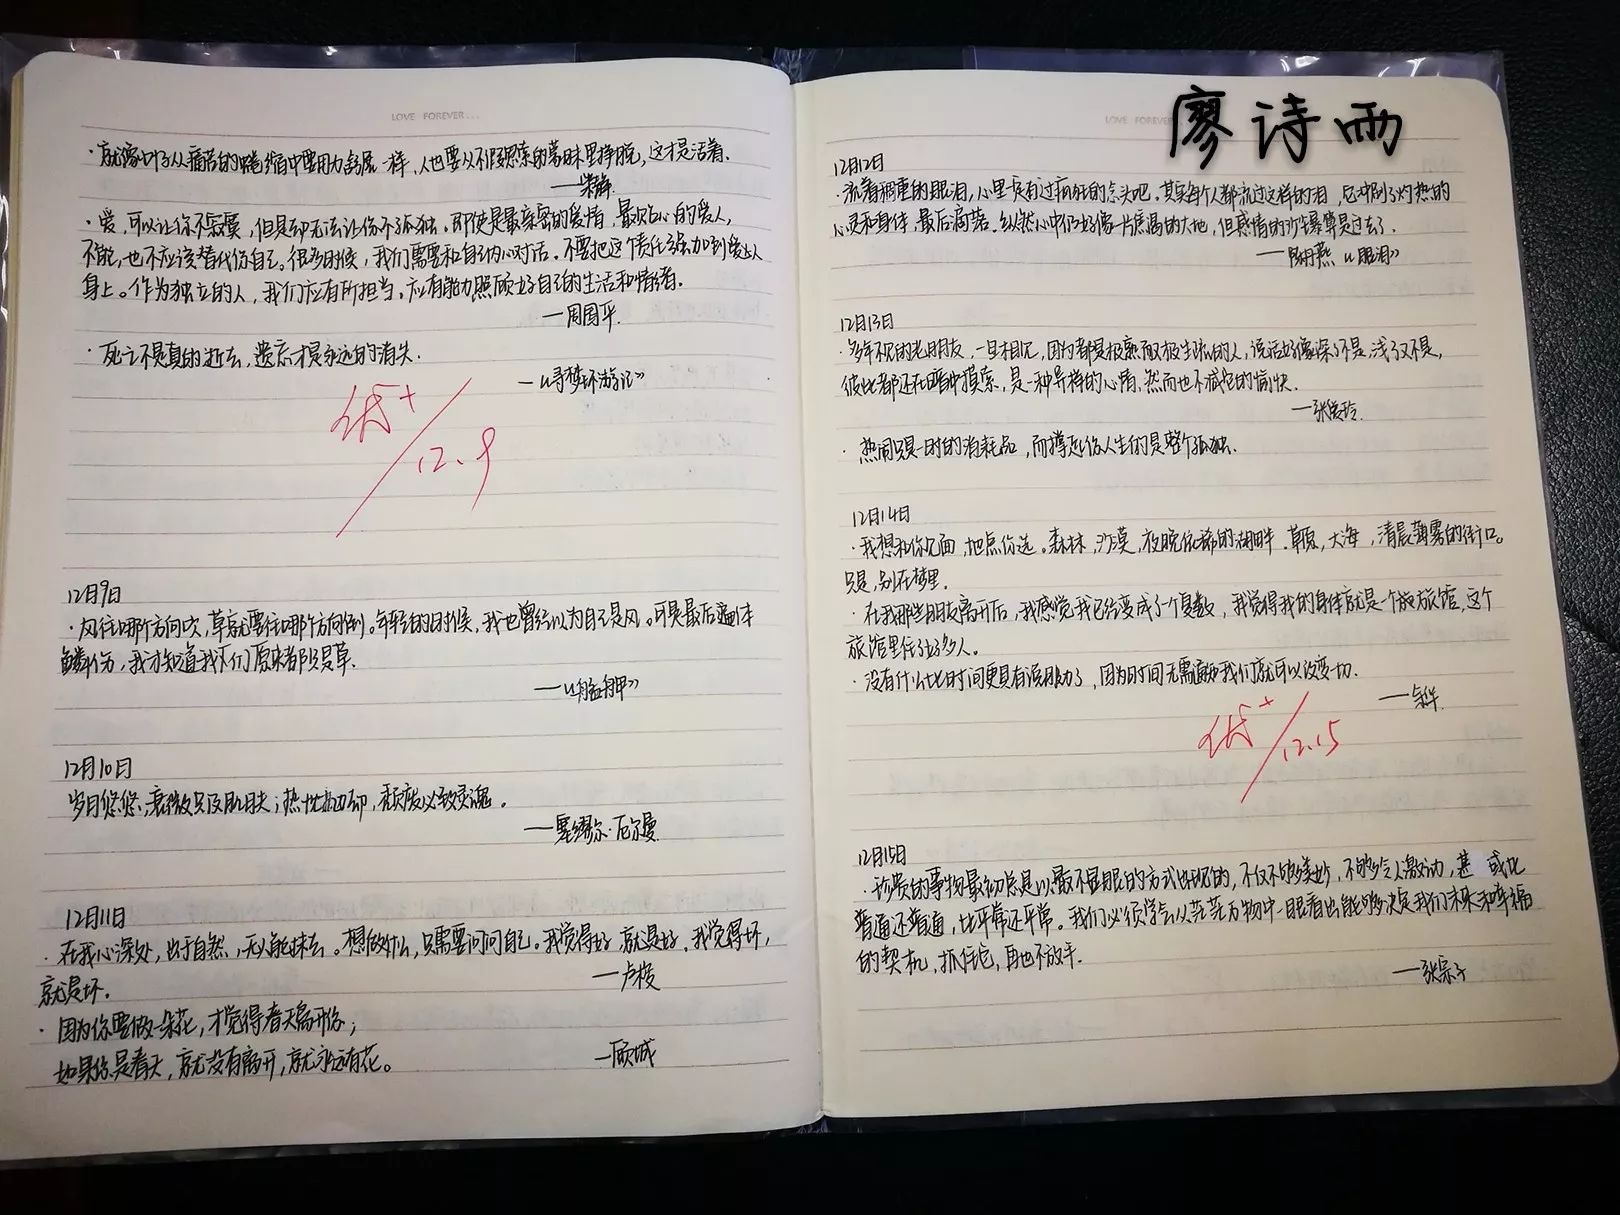 LOVE FOREVER...
·就像叶子从痛苦的蜷缩中要用力舒展一样,人也要从不假思索的蒙昧里挣脱,这才是活着.
——柴静.
·爱,可以让你不寂寞,但是却无法让你不孤独。即使是最亲密的爱情,最贴心的爱人,
不能,也不应该替代你自己。很多时候,我们需要和自己内心对话。不要把这个责任强加到爱人
身上。作为独立的人,我们应有所担当,应有能力照顾好自己的生活和情绪.
——周国平.
·死亡不是真的逝去,遗忘才是永远的消失.
——《寻梦环游记》
优+
12.9
12月9日
·风往哪个方向吹,草就要往哪个方向倒。年轻的时候,我也曾经以为自己是风。可是最后遍体
鳞伤,我才知道我们原来都只是草.
12月10日
岁月悠悠,衰微只及肌肤;热忱抛却,颓废必致灵魂。
——塞缪尔·厄尔曼
12月11日
·在我心深处,出于自然,无人能抹去。想做什么,只需要问问自己。我觉得好,就是好,我觉得坏,
就是坏.
——卢梭
·因为你要做一朵花,才觉得春天离开你;
如果你是春天,就没有离开,就永远有花。
——顾城
LOVE FOREVER
廖诗雨
12月12日
·流着稠重的眼泪,心里一定有过痛死的念头吧.其实每个人都流过这样的泪,它冲刷了灼热的
心灵和身体,最后滴落.纵然心中仍好像一片焦渴的大地,但感情的沙暴算是过去了.
——陈丹燕《眼泪》
12月13日
·多年不见的老朋友,一旦相见,因为都是极熟而又极生疏的人,说话好像深了不是,浅了又不是,
彼此都还在暗中摸索,是一种异样的心情,然而也不减它的愉快.
——张爱玲.
·热闹只是一时的消耗品,而撑起你人生的是整个孤独.
12月14日
·我想和你见面,地点你选。森林,沙漠,夜晚依稀的湖畔.草原,大海,清晨薄雾的街口。
只是,别在梦里.
·在我那些朋友离开后,我感觉我已经变成了一个复数,我觉得我的身体就是一个旅馆,这个
旅馆里住了好多人。
·没有什么比时间更具有说服力了,因为时间无需通知我们就可以改变一切.
——余华.
优+
12.15
12月15日
·珍贵的事物最初总是以最不显眼的方式出现的,不仅不够美妙,不够令人激动,甚或比
普通还普通,比平常还平常。我们必须学会从茫茫万物中一眼看出能够决定我们未来和幸福
的契机,抓住它,再也不放手.
——张宗子